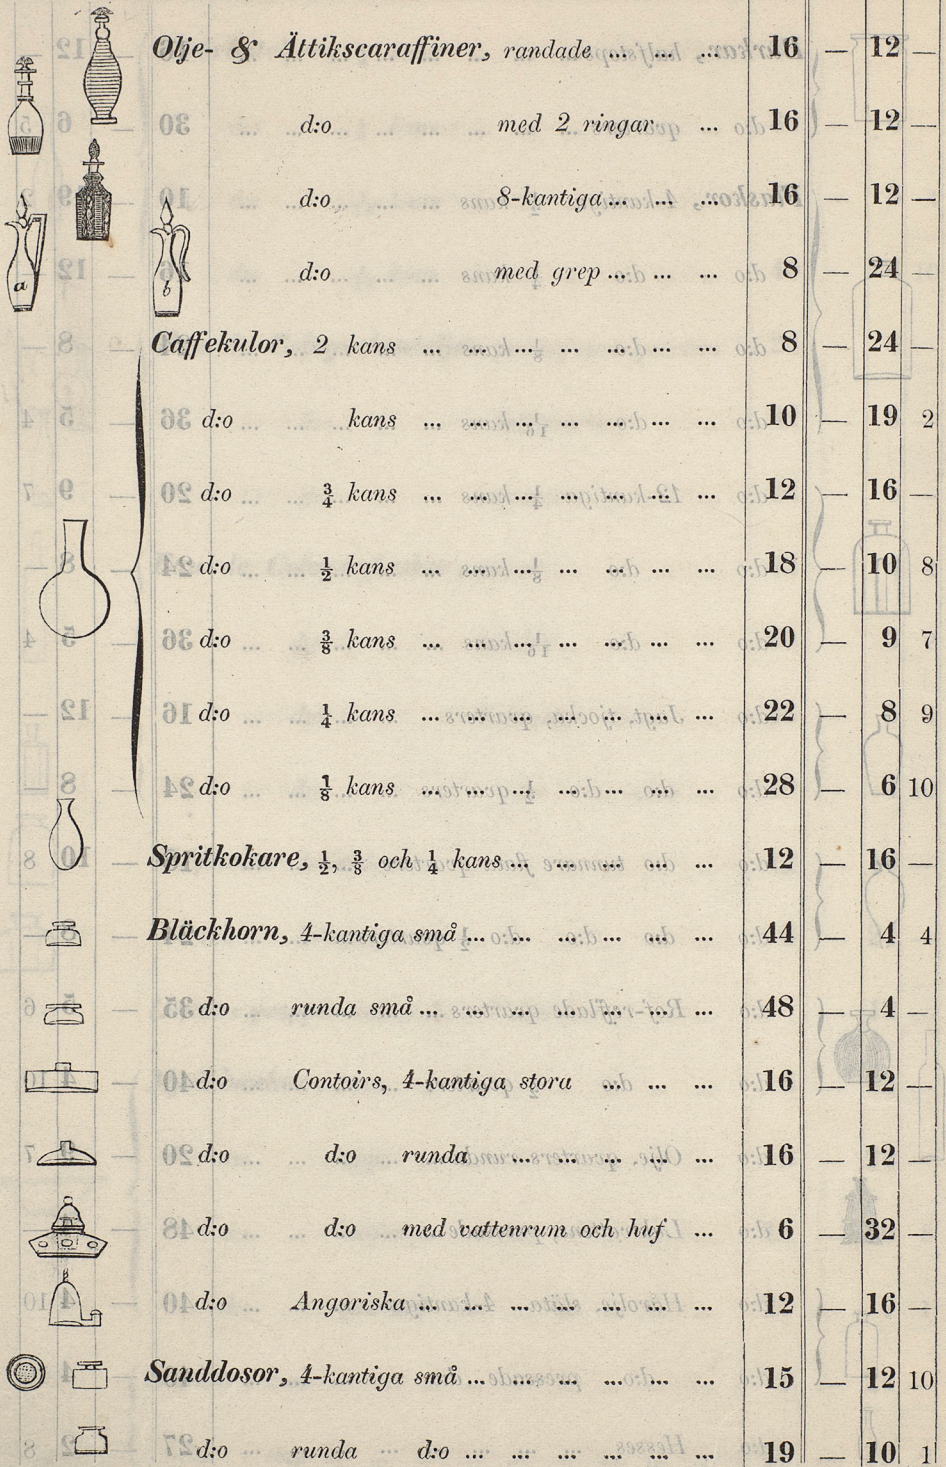 Olje- & Ättikscaraffiner, randade ... ... ... 16 — 12 —
d:o med 2 ringar ... 16 — 12 —
d:o 8-kantiga ... ... ... 16 — 12 —
d:o med grep ... ... ... 8 — 24 —
a b
Caffekulor, 2 kans ... ... ... ... ... ... ... 8 — 24 —
d:o kans ... ... ... ... ... ... ... 10 — 19 2
d:o 3/4 kans ... ... ... ... ... ... ... 12 — 16 —
d:o 1/2 kans ... ... ... ... ... ... ... 18 — 10 8
d:o 3/8 kans ... ... ... ... ... ... ... 20 — 9 7
d:o 1/4 kans ... ... ... ... ... ... ... 22 — 8 9
d:o 1/8 kans ... ... ... ... ... ... ... 28 — 6 10
Spritkokare, 1/2, 3/8 och 1/4 kans ... ... ... ... ... 12 — 16 —
Bläckhorn, 4-kantiga små ... ... ... ... ... ... 44 — 4 4
d:o runda små ... ... ... ... ... ... ... 48 — 4 —
d:o Contoirs, 4-kantiga stora ... ... ... 16 — 12 —
d:o d:o runda ... ... ... ... ... 16 — 12 —
d:o d:o med vattenrum och huf ... 6 — 32 —
d:o Angoriska ... ... ... ... ... ... ... 12 — 16 —
Sanddosor, 4-kantiga små ... ... ... ... ... ... 15 — 12 10
d:o runda d:o ... ... ... ... ... ... 19 — 10 1